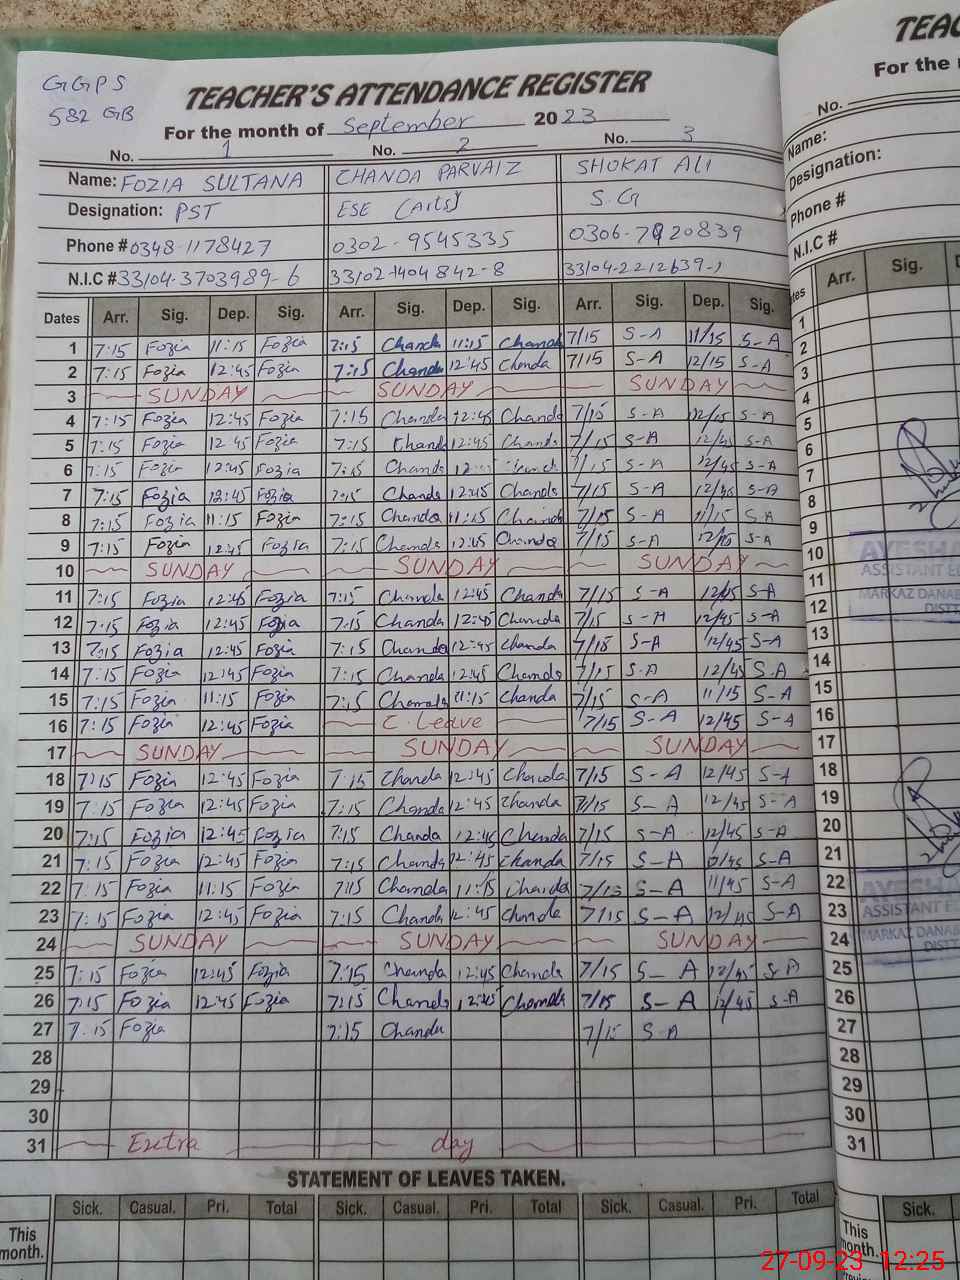 GGPS
582 GB
TEACHER'S ATTENDANCE REGISTER
For the month of September 2023
No. 1 No. 2 No. 3
Name: FOZIA SULTANA CHANDA PARVAIZ SHOKAT ALI
Designation: PST ESE (Arts) S.G
Phone # 0348-1178427 0302-9545335
N.I.C # 33104-3703989-6 33102-1404842-8
Dates Arr. Sig. Dep. Sig. Arr. Sig. Dep. Sig. Arr. Sig. Dep. Sig.
1 7:15 Fozia 11:15 Fozia 7:15 Chanda 11:15 Chanda 7/15 S-A 11/15 S-A
2 7:15 Fozia 12:45 Fozia 7:15 Chanda 12:45 Chanda 7/15 S-A 12/15 S-A
3 SUNDAY SUNDAY SUNDAY
4 7:15 Fozia 12:45 Fozia 7:15 Chanda 12:45 Chanda 7/15 S-A 12/45 S-A
5 7:15 Fozia 12:45 Fozia 7:15 Chanda 12:45 Chanda 7/15 S-A 12/45 S-A
6 7:15 Fozia 12:45 Fozia 7:15 Chanda Chanda 7/15 S-A 12/45 S-A
7 7:15 Fozia 12:45 Fozia 7:15 Chanda 12:45 Chanda 7/15 S-A 12/45 S-A
8 7:15 Fozia 11:15 Fozia 7:15 Chanda 11:15 Chanda 7/15 S-A 11/15 S-A
9 7:15 Fozia 12:45 Fozia 7:15 Chanda 12:45 Chanda 7/15 S-A S-A
10 SUNDAY SUNDAY SUNDAY
11 7:15 Fozia 12:45 Fozia 7:15 Chanda 12:45 Chanda 7/15 S-A S-A
12 7:15 Fozia 12:45 Fozia 7:15 Chanda 12:45 Chanda 7/15 S-A 12/45 S-A
13 7:15 Fozia 12:45 Fozia 7:15 Chanda 12:45 Chanda 7/15 S-A 12/45 S-A
14 7:15 Fozia 12:45 Fozia 7:15 Chanda 12:45 Chanda 7/15 S-A 12/45 S-A
15 7:15 Fozia 11:15 Fozia 7:15 Chanda 11:15 Chanda 7/15 S-A 11/15 S-A
16 7:15 Fozia 12:45 Fozia C. Leave 7/15 S-A 12/45 S-A
17 SUNDAY SUNDAY SUNDAY
18 7:15 Fozia 12:45 Fozia 7:15 Chanda 12:45 Chanda 7/15 S-A 12/45 S-A
19 7:15 Fozia 12:45 Fozia 7:15 Chanda 12:45 Chanda 7/15 S-A 12/45 S-A
20 7:15 Fozia 12:45 Fozia 7:15 Chanda 12:45 Chanda 7/15 S-A 12/45 S-A
21 7:15 Fozia 12:45 Fozia 7:15 Chanda 12:45 Chanda 7/15 S-A S-A
22 7:15 Fozia 11:15 Fozia 7:15 Chanda 11:15 Chanda 7/15 S-A 11/45 S-A
23 7:15 Fozia 12:45 Fozia 7:15 Chanda 12:45 Chanda 7/15 S-A 12/45 S-A
24 SUNDAY SUNDAY SUNDAY
25 7:15 Fozia 12:45 Fozia 7:15 Chanda 12:45 Chanda 7/15 S-A 12/45 S-A
26 7:15 Fozia 12:45 Fozia 7:15 Chanda 12:45 Chanda 7/15 S-A 12/45 S-A
27 7:15 Fozia 7:15 Chanda 7/15 S-A
28
29
30
31 Extra day
STATEMENT OF LEAVES TAKEN.
Sick. Casual. Pri. Total Sick. Casual. Pri. Total Sick. Casual. Pri. Total
This month.
For the
No.
Name:
Designation:
Phone #
N.I.C #
Arr. Sig.
1
2
3
4
5
6
7
8
9
10
11
12
13
14
15
16
17
18
19
20
21
22
23
24
25
26
27
28
29
30
31
AYESHA
ASSISTANT
MARKAZ DANAB
DISTT
AYESHA
ASSISTANT
MARKAZ DANAB
DISTT
Sick.
This month.
27-09-23 12:25